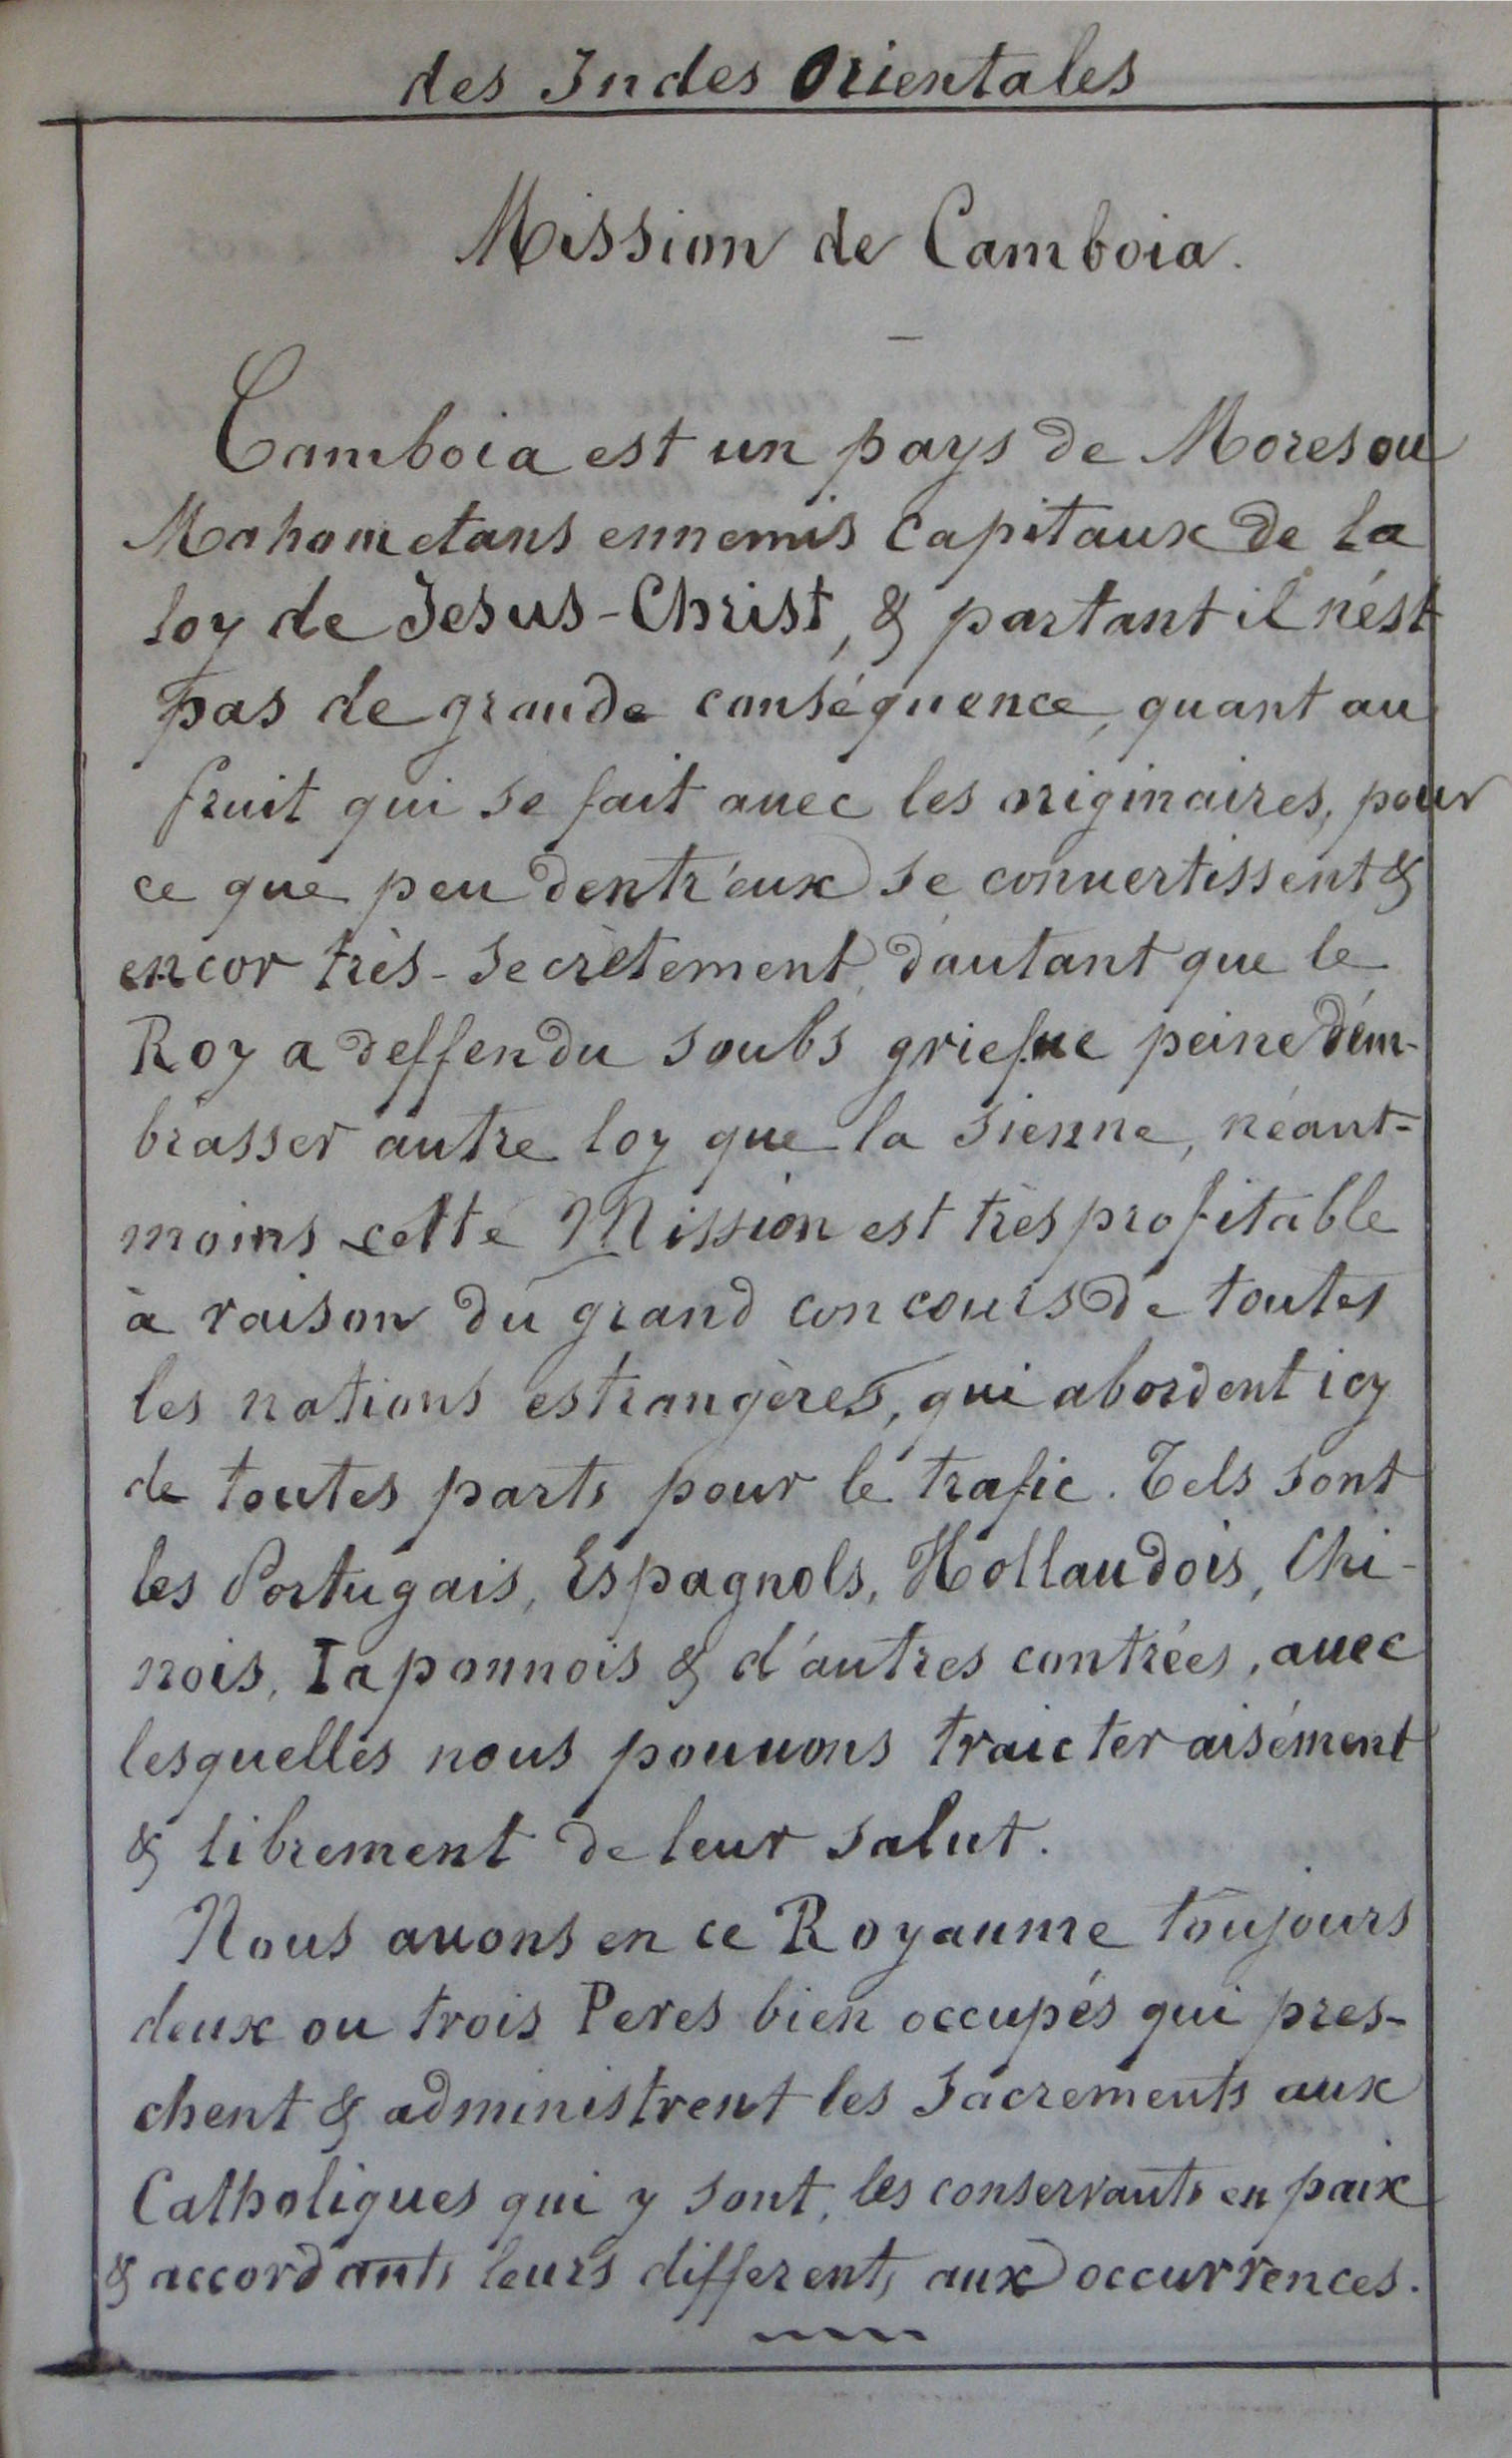 des Indes Orientales
Mission de Camboia.
Camboia est un pays de Mores ou
Mahometans ennemis capitaux de la
loy de Jesus-Christ, & partant il n'est
pas de grande conséquence, quant au
fruit qui se fait auec les originaires, pour
ce que peu d'entr'eux se conuertissent &
encor très-secrètement, d'autant que le
Roy a deffendu soubs griefue peine d'em-
brasser autre loy que la sienne, néant-
moins cette Mission est très profitable
à raison du grand concours de toutes
les nations estrangères, qui abordent icy
de toutes parts pour le trafic. Tels sont
les Portugais, Espagnols, Hollandois, Chi-
nois, Iaponnois & d'autres contrées, auec
lesquelles nous pouuons traicter aisément
& librement de leur salut.
Nous auons en ce Royaume toujours
deux ou trois Peres bien occupés qui pres-
chent & administrent les Sacrements aux
Catholiques qui y sont, les conservants en paix
& accordants leurs differents aux occurrences.